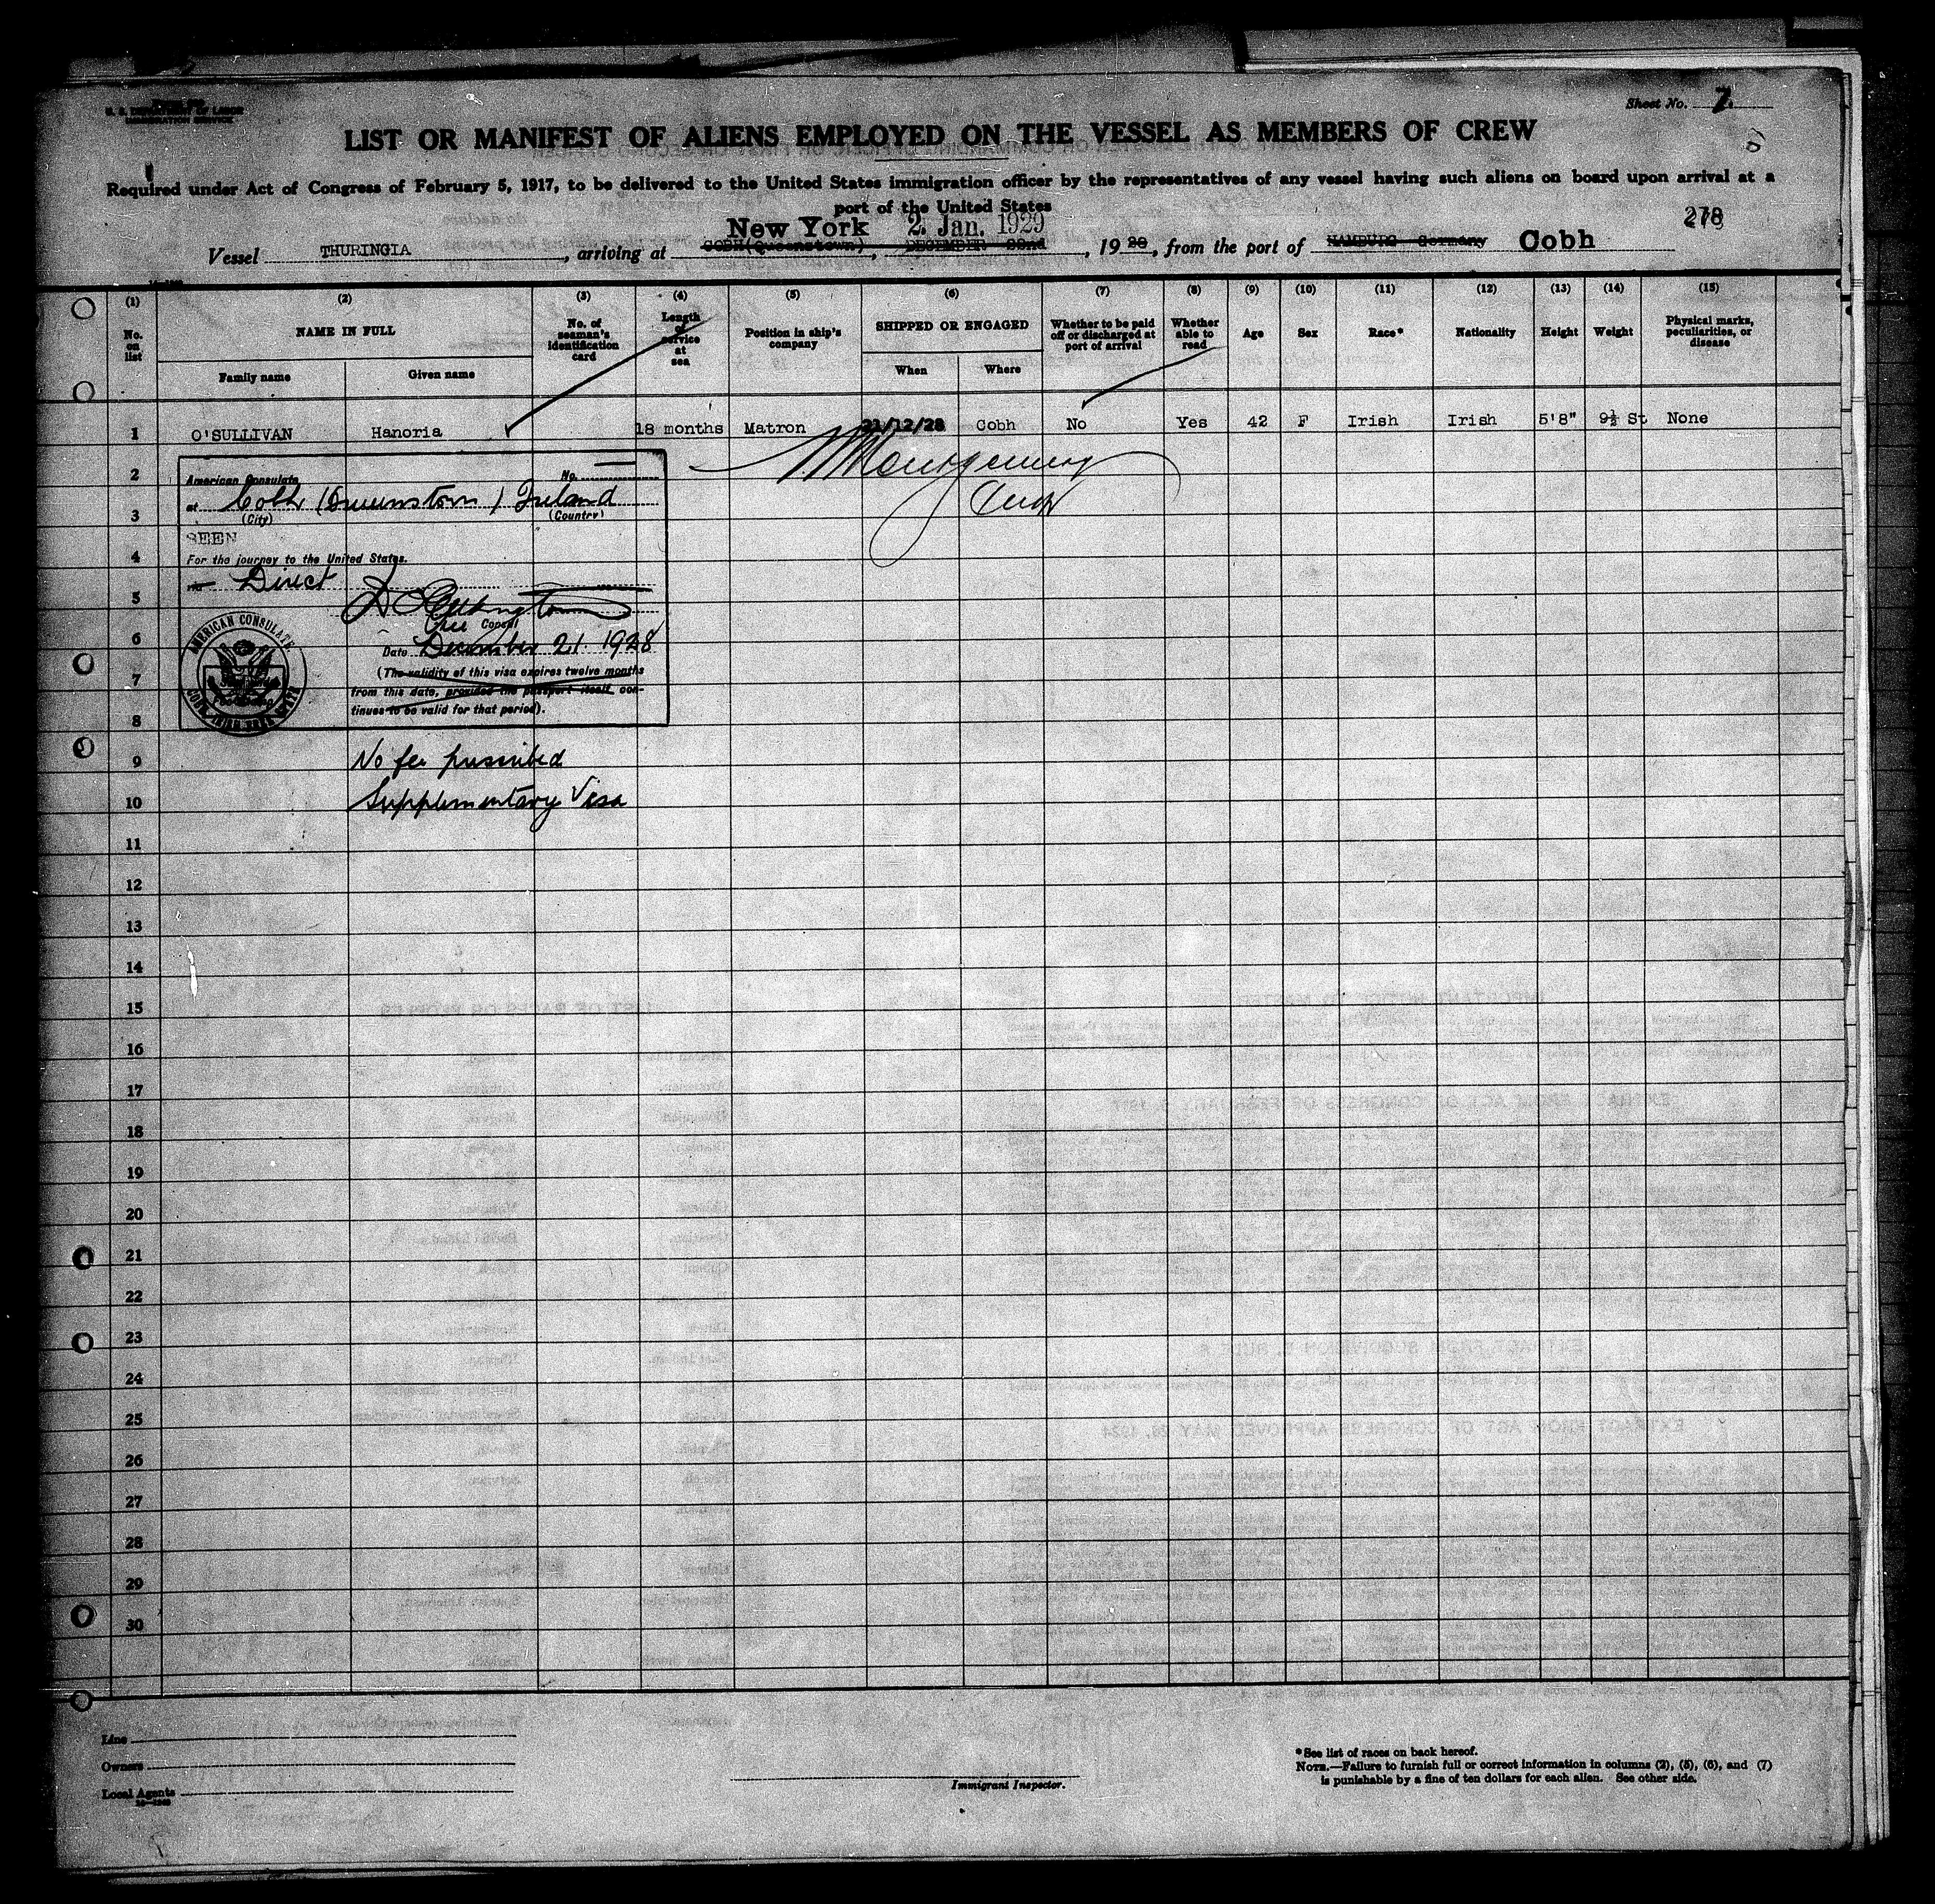 U. S. DEPARTMENT OF LABOR
IMMIGRATION SERVICE
Sheet No. 7
LIST OR MANIFEST OF ALIENS EMPLOYED ON THE VESSEL AS MEMBERS OF CREW
Required under Act of Congress of February 5, 1917, to be delivered to the United States immigration officer by the representatives of any vessel having such aliens on board upon arrival at a
port of the United States
278
New York 2. Jan. 1929
Vessel THURINGIA, arriving at COBH(Queenstown), DECEMBER 22nd, 19 28, from the port of HAMBURG Germany Cobh
(1) (2) (3) (4) (5) (6) (7) (8) (9) (10) (11) (12) (13) (14) (15)
No. on list NAME IN FULL No. of seaman's identification card Length of service at sea Position in ship's company SHIPPED OR ENGAGED Whether to be paid off or discharged at port of arrival Whether able to read Age Sex Race* Nationality Height Weight Physical marks, peculiarities, or disease
Family name Given name When Where
1 O'SULLIVAN Hanoria 18 months Matron 21/12/28 Cobh No Yes 42 F Irish Irish 5'8" 9½ St None
2
Montgomery
American Consulate No.
3
at Cobh (Queenstown) Ireland
(City) (Country)
SEEN
4
For the journey to the United States.
Direct
5
Consul
6
Date December 21. 1928
(The validity of this visa expires twelve months
7
from this date, provided the passport itself con-
tinues to be valid for that period).
AMERICAN CONSULATE
8
9 No fee prescribed
10 Supplementary Visa
11
12
13
14
15
16
17
18
19
20
21
22
23
24
25
26
27
28
29
30
Line
Owners
Local Agents
Immigrant Inspector.
*See list of races on back hereof.
NOTE.—Failure to furnish full or correct information in columns (2), (5), (6), and (7)
is punishable by a fine of ten dollars for each alien. See other side.